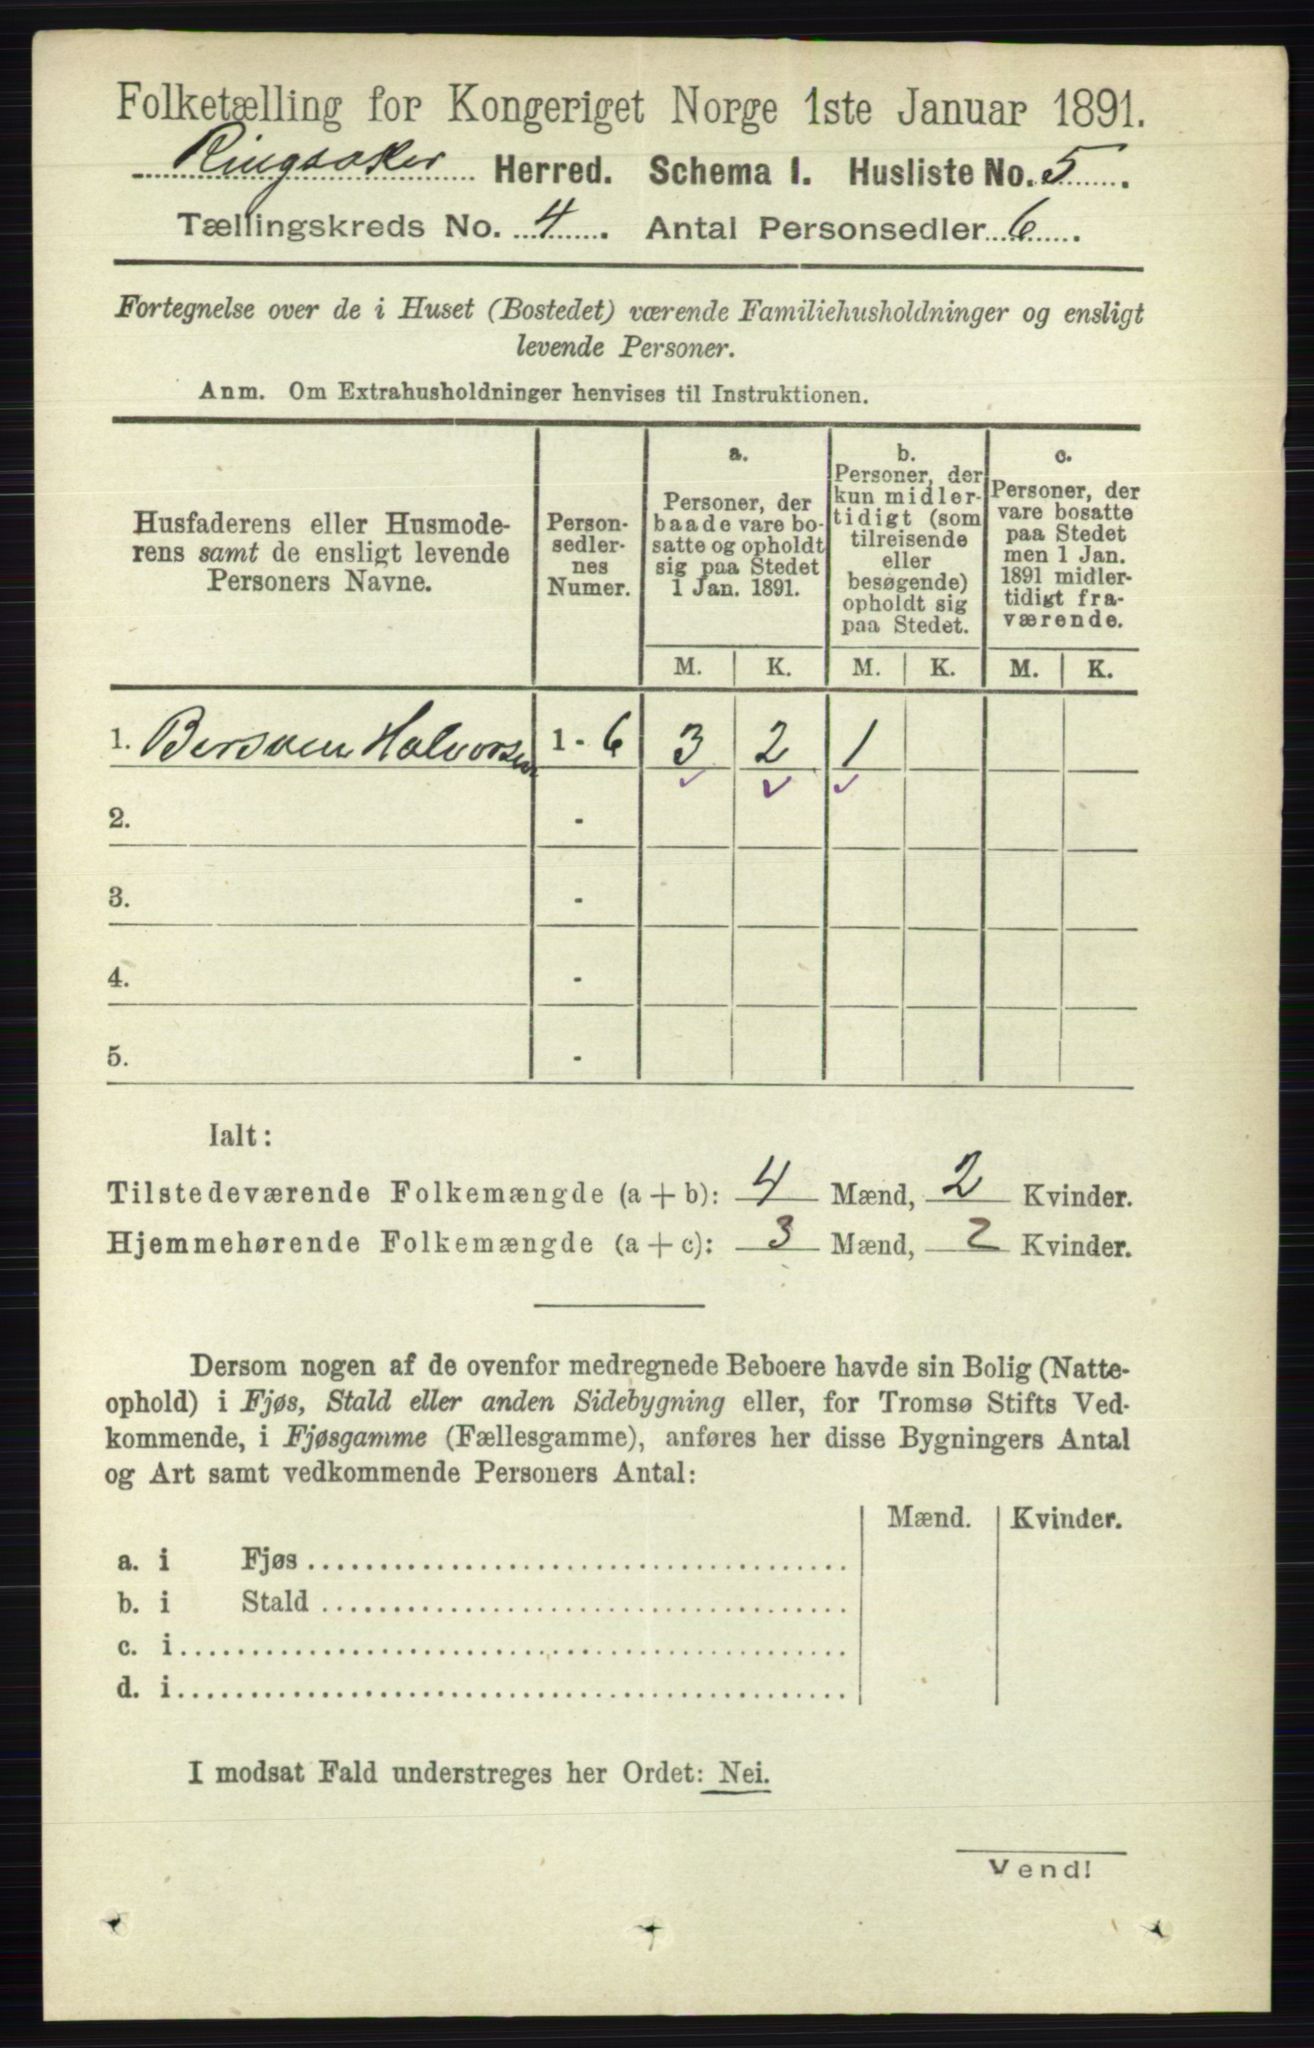 Folketælling for Kongeriget Norge 1ste Januar 1891.
Ringsaker Herred. Schema I. Husliste No. 5
Tællingskreds No. 4. Antal Personsedler 6.
Fortegnelse over de i Huset (Bostedet) værende Familiehusholdninger og ensligt
levende Personer.
Anm. Om Extrahusholdninger henvises til Instruktionen.
Husfaderens eller Husmode-
rens samt de ensligt levende
Personers Navne.
Person-
sedler-
nes
Numer.
a.
Personer, der
baade vare bo-
satte og opholdt
sig paa Stedet
1 Jan. 1891.
b.
Personer, der
kun midler-
tidigt (som
tilreisende
eller
besøgende)
opholdt sig
paa Stedet.
c.
Personer, der
vare bosatte
paa Stedet
men 1 Jan.
1891 midler-
tidigt fra-
værende.
M. K. M. K. M. K.
1. Bersven Halvorsen 1 - 6 3 2 1
2. -
3. -
4. -
5. -
Ialt:
Tilstedeværende Folkemængde (a + b): 4 Mænd, 2 Kvinder.
Hjemmehørende Folkemængde (a + c): 3 Mænd, 2 Kvinder.
Dersom nogen af de ovenfor medregnede Beboere havde sin Bolig (Natte-
ophold) i Fjøs, Stald eller anden Sidebygning eller, for Tromsø Stifts Ved-
kommende, i Fjøsgamme (Fællesgamme), anføres her disse Bygningers Antal
og Art samt vedkommende Personers Antal:
Mænd. Kvinder.
a. i Fjøs
b. i Stald
c. i
d. i
I modsat Fald understreges her Ordet: Nei.
Vend!